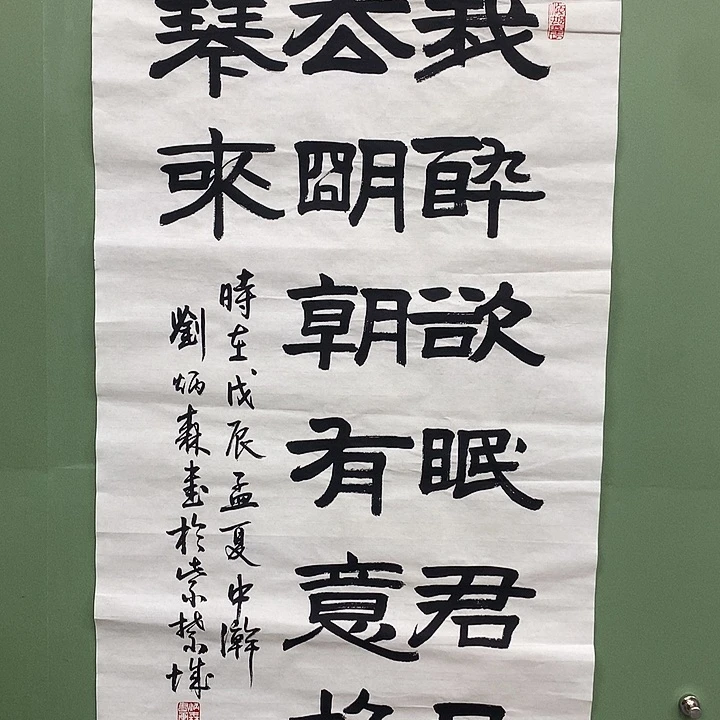 我醉欲眠君
去朙朝有意
琴來
時在戊辰孟夏中澣
劉炳森書於紫禁城